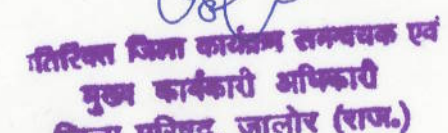 अतिरिक्त जिला कार्यक्रम समन्वयक एवं
मुख्य कार्यकारी अधिकारी
जिला परिषद जालोर (राज.)